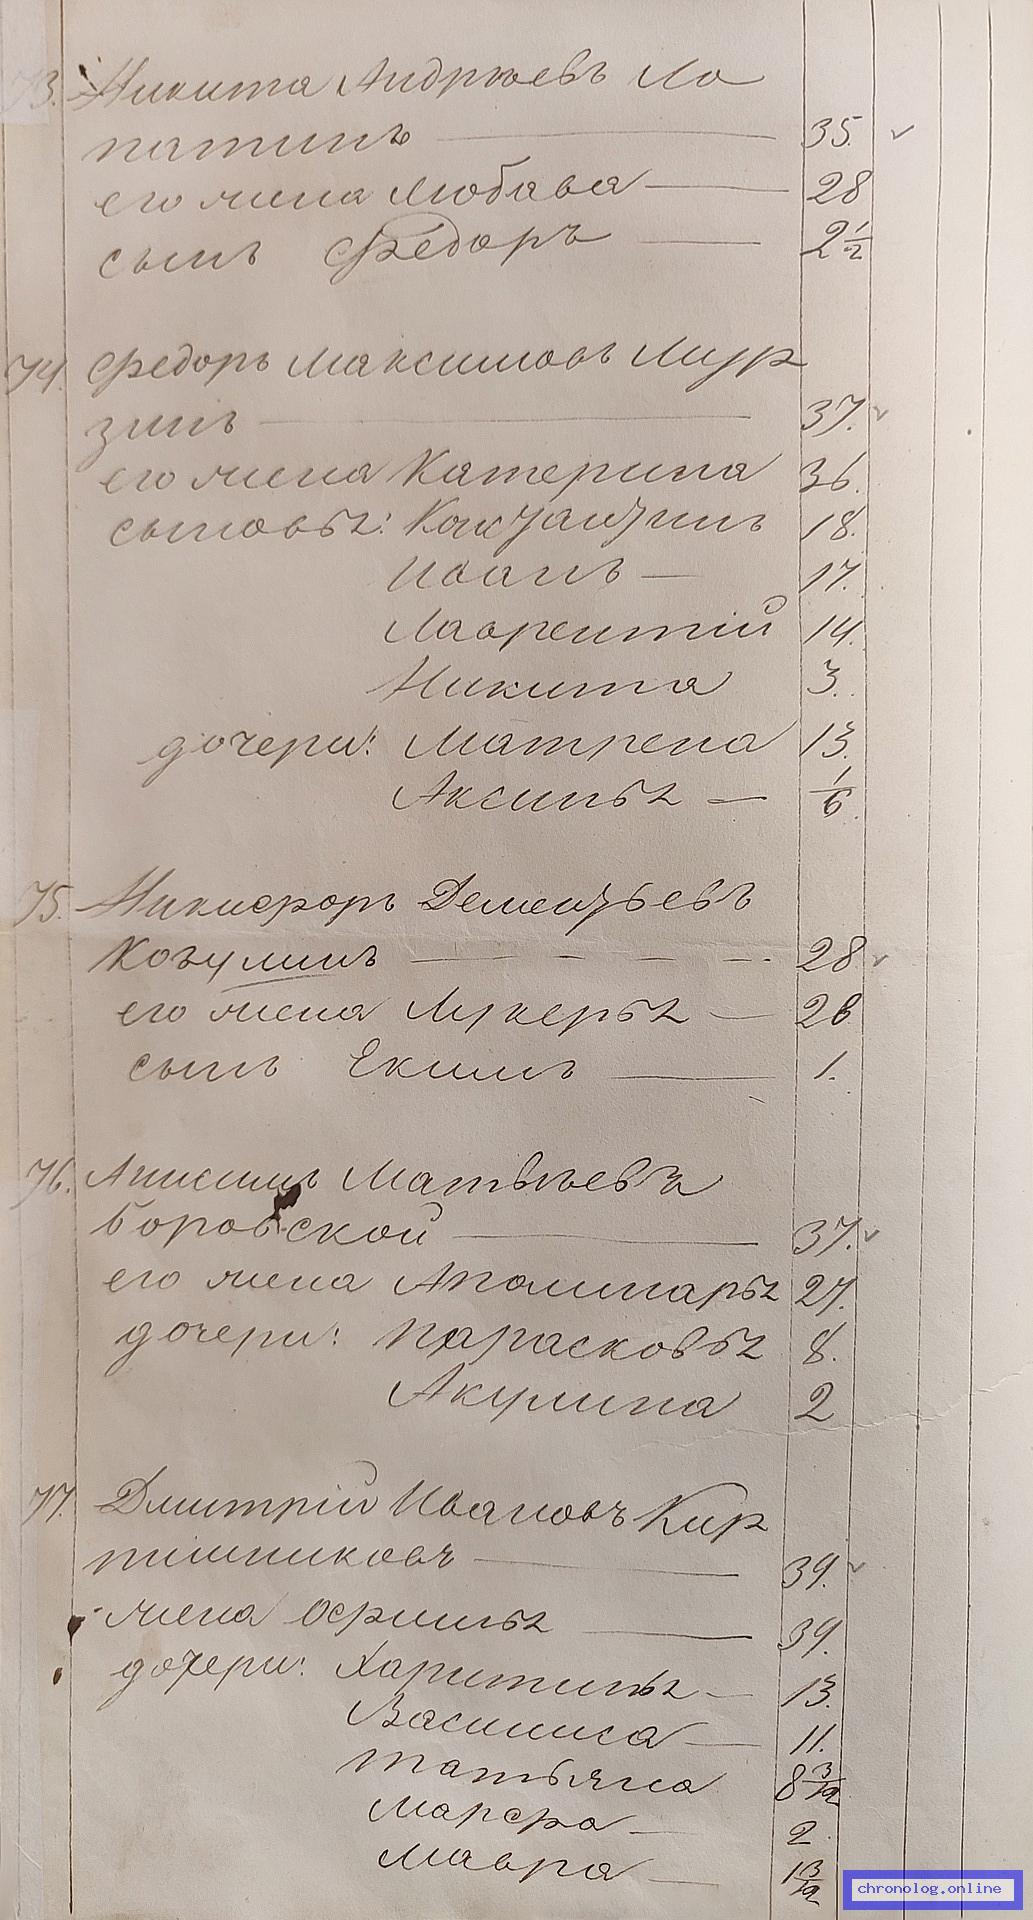 73. Никита Андреевъ Ло
патинъ — 35.
его жена Любава — 28
сынъ Федоръ — 2 1/2
74. Федоръ Максимовъ Мур
зинъ — 37.
его жена Катерина 36.
сыновья: Константинъ 18.
Иванъ — 17.
Лаврентій 14.
Никита 3.
дочери: Матрена 13.
Аксинья — 1/6.
75. Никифоръ Дементьевъ
— 28
его жена Лукерья — 28
сынъ Екимъ — 1.
76. Анисимъ Матвѣевъ
Боровской — 37.
его жена Аполинарья 27.
дочери: Парасковья 8.
Акулина 2
77. Дмитрій Ивановъ Кир
пишниковъ — 39.
жена Офимья — 39.
дочери: Харитинья — 13.
Василиса — 11.
Татьяна 8 3/12
Марфа — 2.
Мавра — 1 3/12
chronolog.online